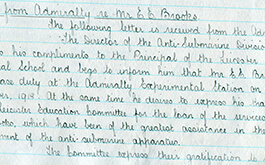 from Admiralty re Mr. E. E. Brooks.
The following letter is received from the Adm
"The Director of the Anti-Submarine
his compliments to the Principal of the
School and begs to inform him that Mr. E. E.
duty at the Admiralty Experimental Station on
At the same time he desires to express his
Education Committee for the loan of the services
which have been of the greatest assistance in the
ment of the anti-submarine apparatus.
The Committee express their gratification